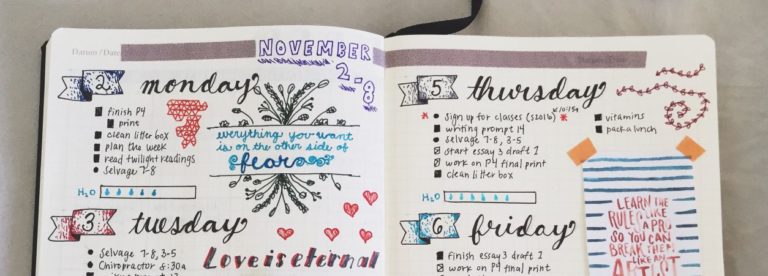 Datum / Date:
NOVEMBER
2-8
2 monday
finish P4
print
clean litter box
plan the week
read twilight readings
selvage 7-8
H₂O
everything you want
is on the other side of
fear
3 tuesday
selvage 7-8, 3-5
Chiropractor 6:30a
Love is eternal
5 thursday
sign up for classes (s2016)
writing prompt 14
selvage 7-8, 3-5
start essay 3 draft 1
work on P4 final print
clean litter box
vitamins
pack a lunch
H₂O
6 friday
finish essay 3 draft 1
work on P4 final print
LEARN THE
RULES LIKE
A PRO
SO YOU CAN
BREAK THEM
LIKE AN
ARTIST